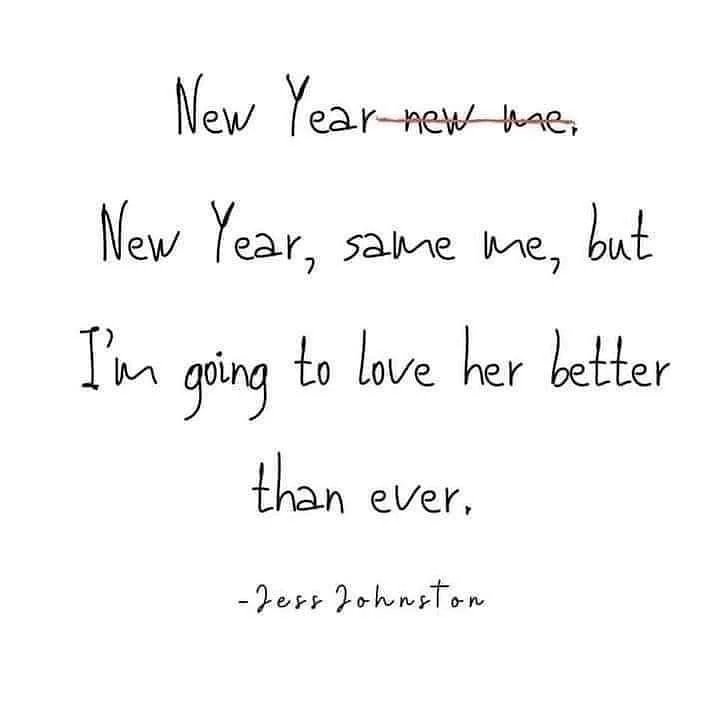 New Year new me.
New Year, same me, but
I'm going to love her better
than ever.
-Jess Johnston